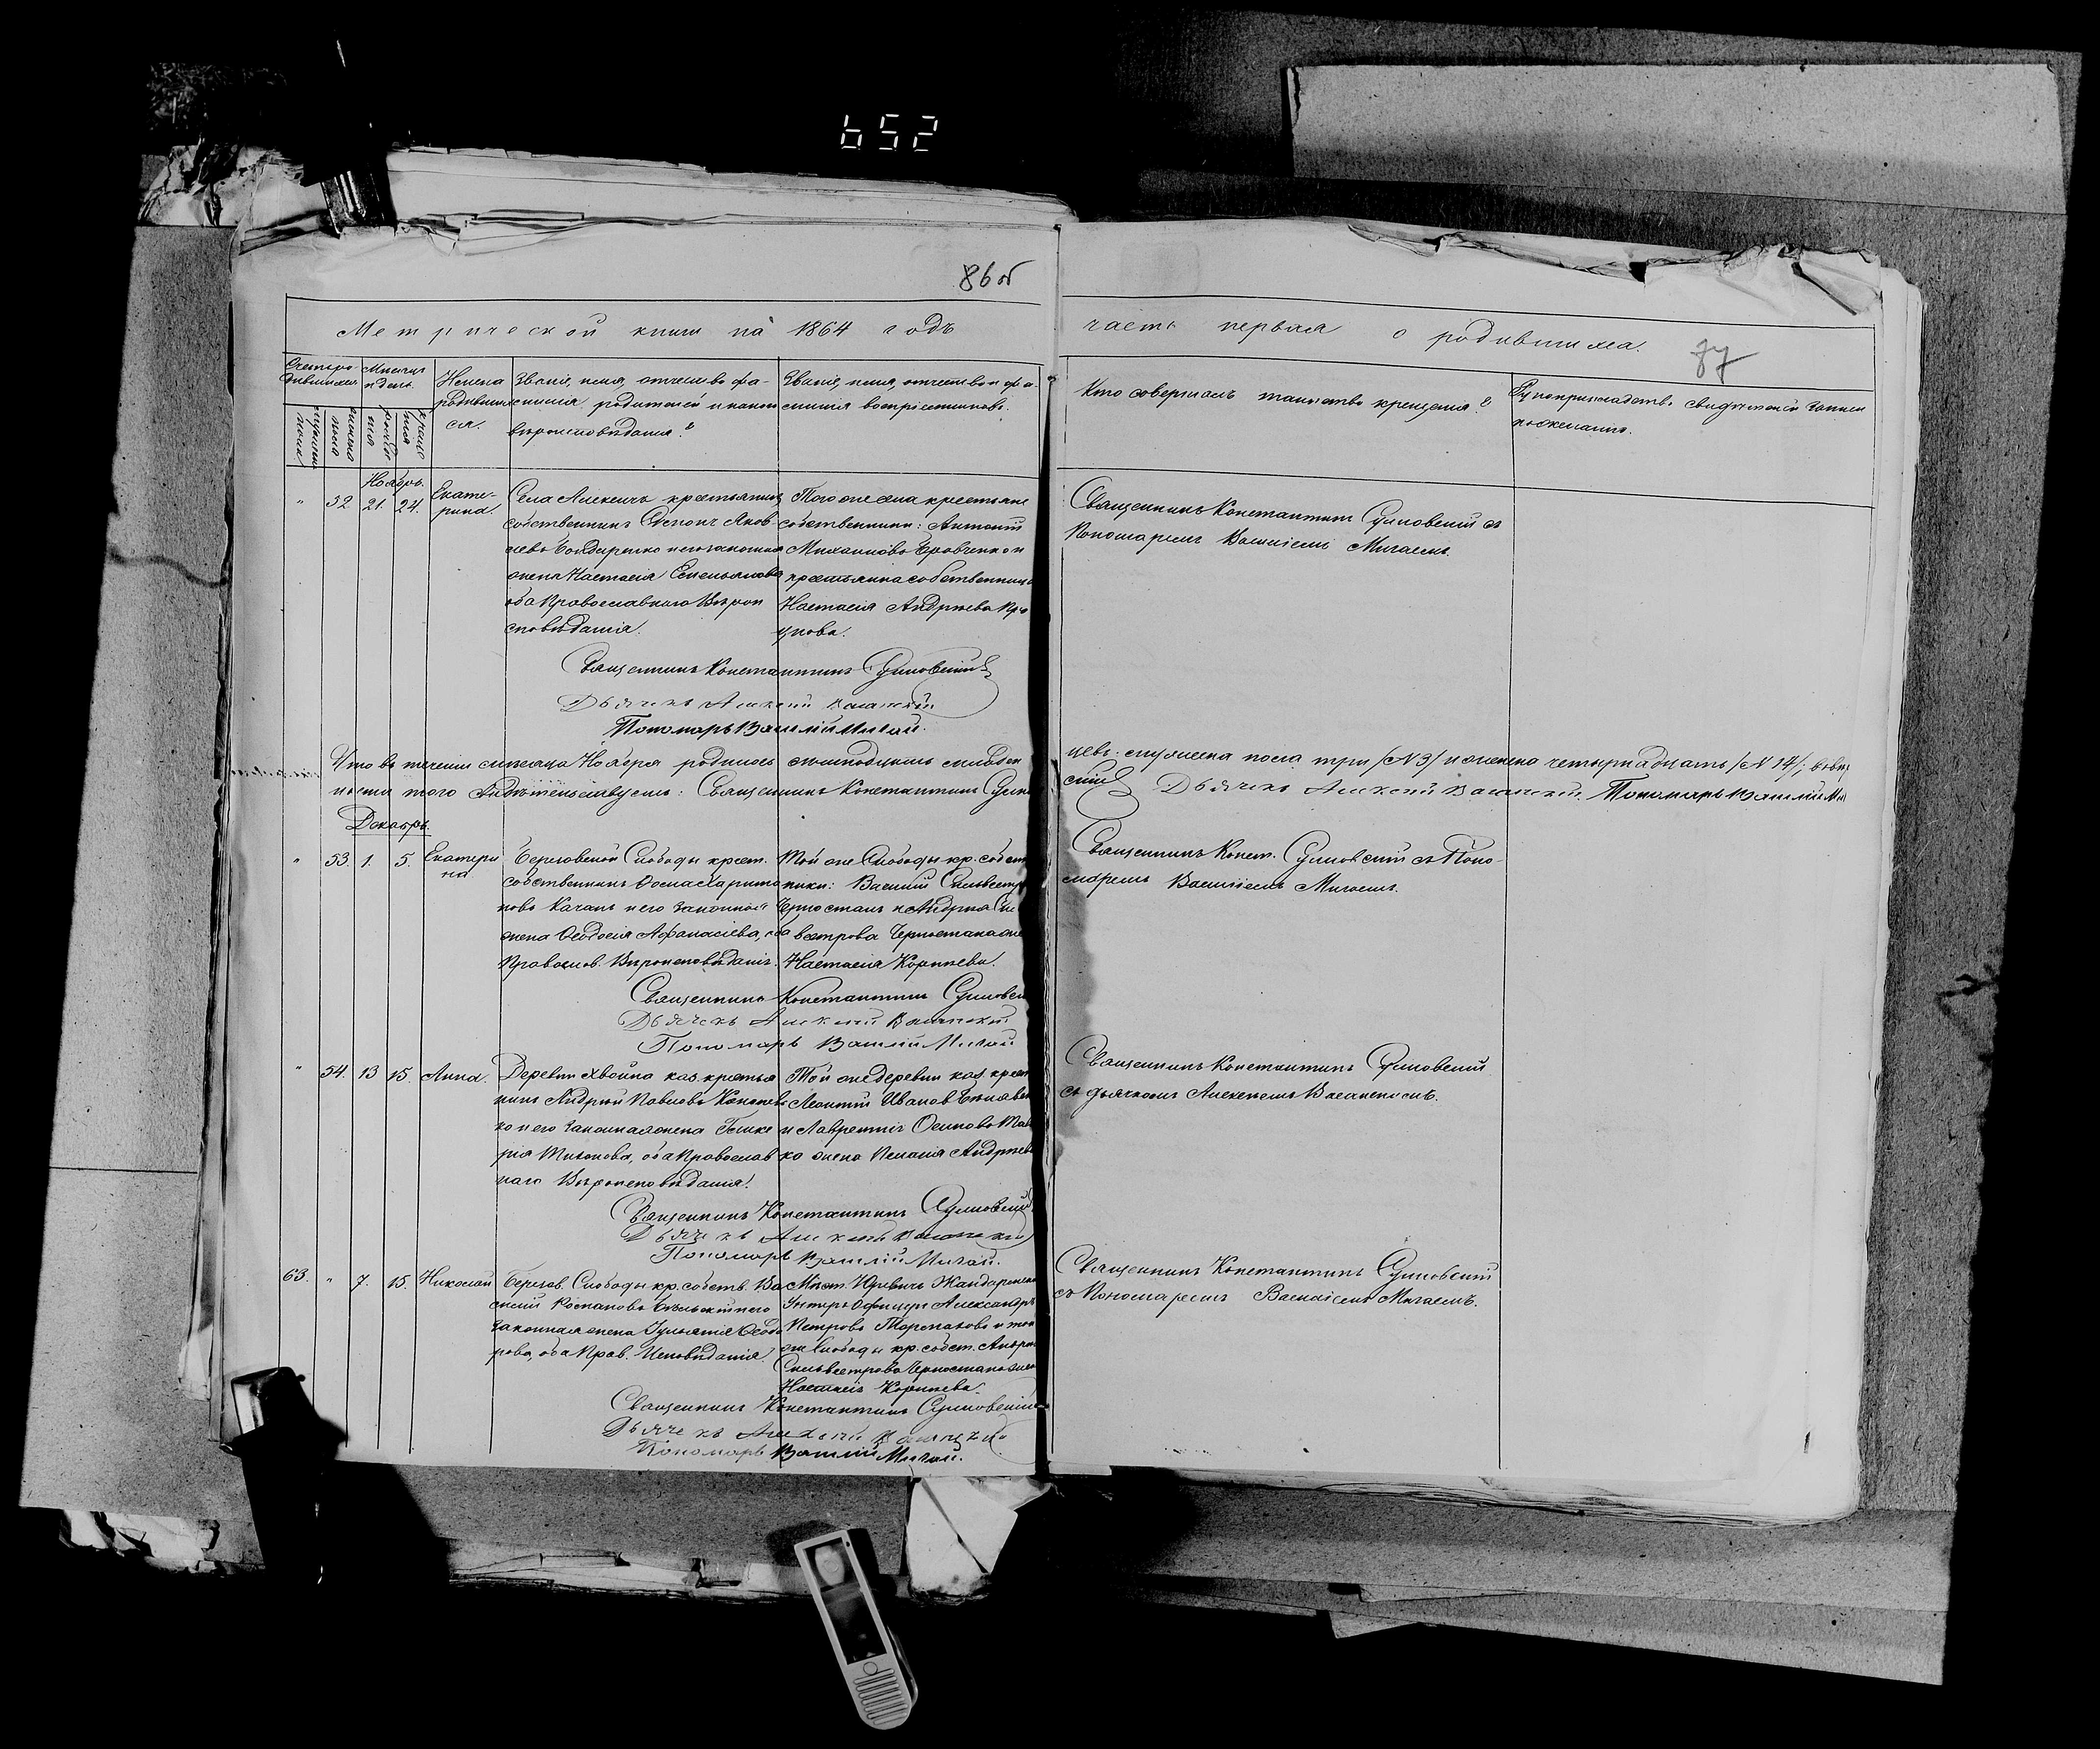 652
86об
Метрической книги на 1864 годъ
часть первая о родившихся.
87
Счетъ родившихся
Мѣсяцъ и день.
Имена родившихся.
Званіе, имя, отчество фамилія родителей и какого вѣроисповѣданія?
Званіе, имя, отчество и фамилія воспріемниковъ.
Кто совершалъ таинство крещенія?
Рукоприкладство свидѣтелей записи по желанію.
мужеска пола
женска пола
рожденія
крещенія
Ноябрь.
" 52 21. 24. Екате-
рина.
Села Алексичъ крестьянинъ
собственникъ Яков-
левъ Бондаренко и его законная
жена Настасія Емельянова
оба Православнаго Вѣрои
сповѣданія.
Того же села крестьяне
собственники: Антоній
Михайловъ Бровченко и
крестьянка собственница
Настасія Андреева
Священникъ Константинъ Сулковскій съ
Пономаремъ Василіемъ Мигаемъ.
Священникъ Константинъ Сулковскій
Дьячекъ Алексій
Пономарь Василій Мигай.
Что въ теченіи мѣсяца Ноября родилось семнадцать младен
цевъ: мужеска пола три (N 3) и женска четырнадцать (N 14);
того свидѣтельствуемъ: Священникъ Константинъ Сулков
скій Дьячекъ Алексій Пономарь Василій Ми
Декабрь.
" 53. 1. 5. Екатери
на
Береговской Слободы крест.
собственникъ Ѳома Харито
новъ Качанъ и его законная
жена Ѳеодосія Афанасіева, оба
Православ. Вѣроисповѣданія.
Той же Слободы кр. собст
ники: Василій Сильвестр
Черностанъ и Андрея Си
вестрова Черностана же
Настасія Корнѣева.
Священникъ Конст. Сулковскій съ Поно-
маремъ Василіемъ Мигаемъ.
Священникъ Константинъ Сулковск
Дьячекъ Алексій
Пономарь Василій Мигай
" 54. 13 15. Анна.
Деревни Хвойна каз. крестья
нинъ Андрей Павловъ
ко и его законная жена Глике
рія Тихонова, оба Православ
наго Вѣроисповѣданія.
Той же деревни каз. крест
Леонтій Ивановъ
и Лаврентія Осипова
ко жена Пелагія Андреева
Священникъ Константинъ Сулковскій
съ дьячкомъ Алексѣемъ
Священникъ Константинъ Сулковскій
Дьячекъ Алексѣй
Пономарь Василій Мигай.
63. " 7. 15. Николай
Берегов. Слободы кр. собств. Ва
силій Романовъ и его
законная жена Гуліянія Ѳеодо
рова, оба Прав. Исповѣданія.
Мѣст. Юревичъ Жандармск
Унтеръ Офицеръ Александръ
Петровъ и той
же Слободы кр. собст. Андрея
Сильвестрова Черностана жена
Настасія Корнѣева.
Священникъ Константинъ Сулковскій
съ Пономаремъ Василіемъ Мигаемъ.
Священникъ Константинъ Сулковскій
Дьячекъ Алексѣй
Пономарь Василій Мигай.